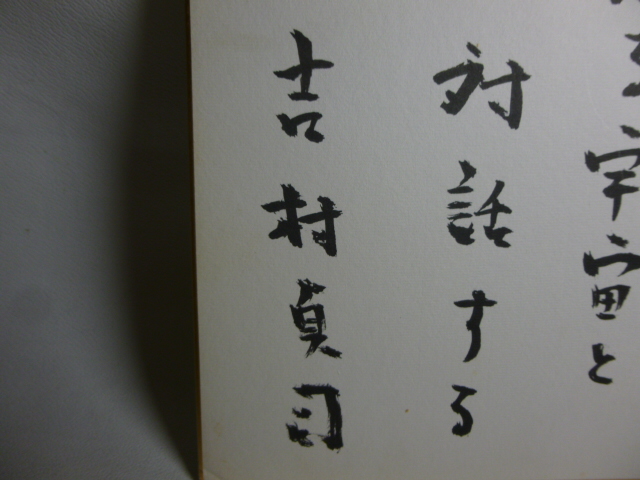 宇宙と
対話する
吉村貞司